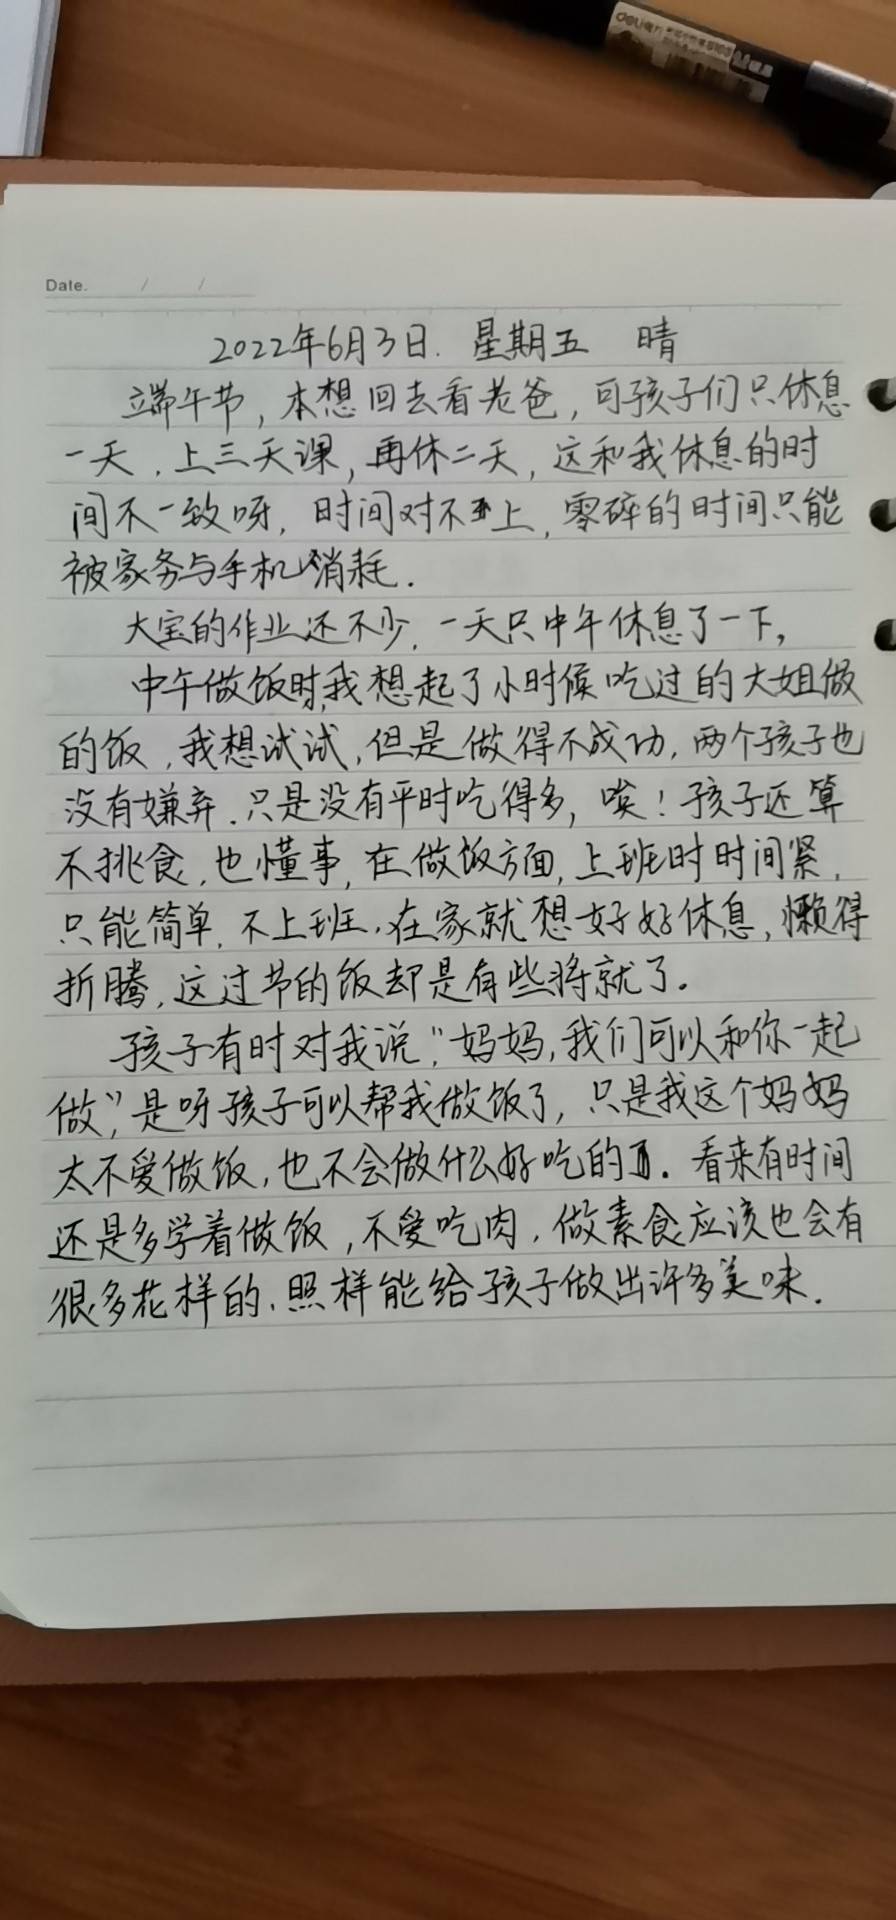 deli得力
Date. / /
2022年6月3日. 星期五 晴
端午节,本想回去看老爸,可孩子们只休息
一天.上三天课,再休二天,这和我休息的时
间不一致呀,时间对不上,零碎的时间只能
被家务与手机消耗.
大宝的作业还不少,一天只中午休息了一下,
中午做饭时,我想起了小时候吃过的大姐做
的饭,我想试试,但是做得不成功,两个孩子也
没有嫌弃.只是没有平时吃得多,唉!孩子还算
不挑食,也懂事,在做饭方面,上班时时间紧,
只能简单,不上班,在家就想好好休息,懒得
折腾,这过节的饭却是有些将就了.
孩子有时对我说:“妈妈,我们可以和你一起
做”,是呀孩子可以帮我做饭了,只是我这个妈妈
太不爱做饭,也不会做什么好吃的.看来有时间
还是多学着做饭,不爱吃肉,做素食应该也会有
很多花样的,照样能给孩子做出许多美味.